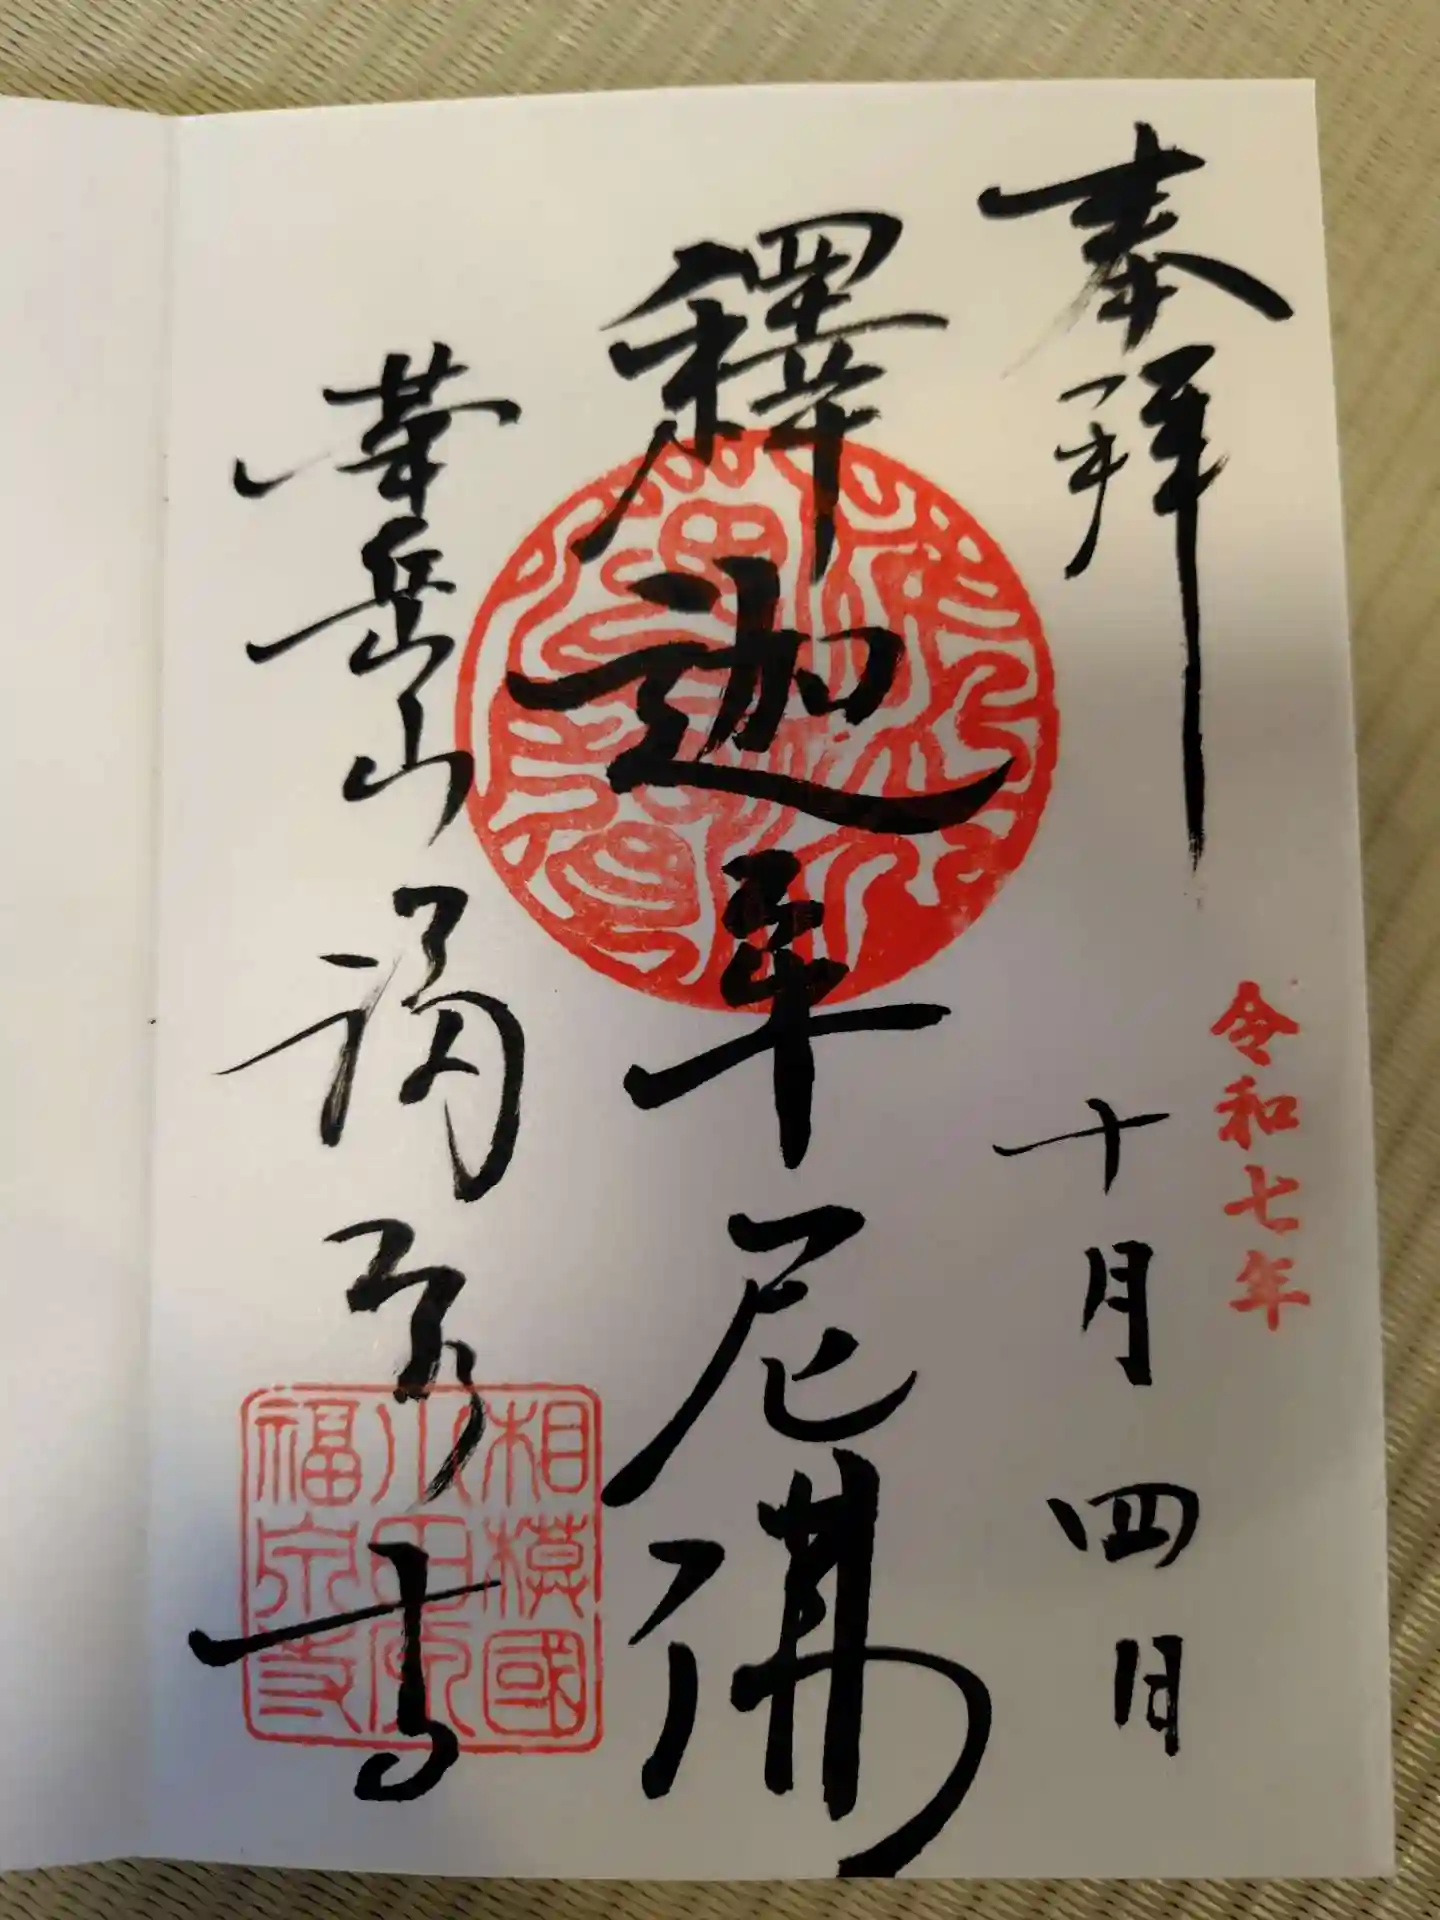 奉拝
令和七年
十月四日
釋迦牟尼佛
華岳山福泉寺
相模國
小田原
福泉寺